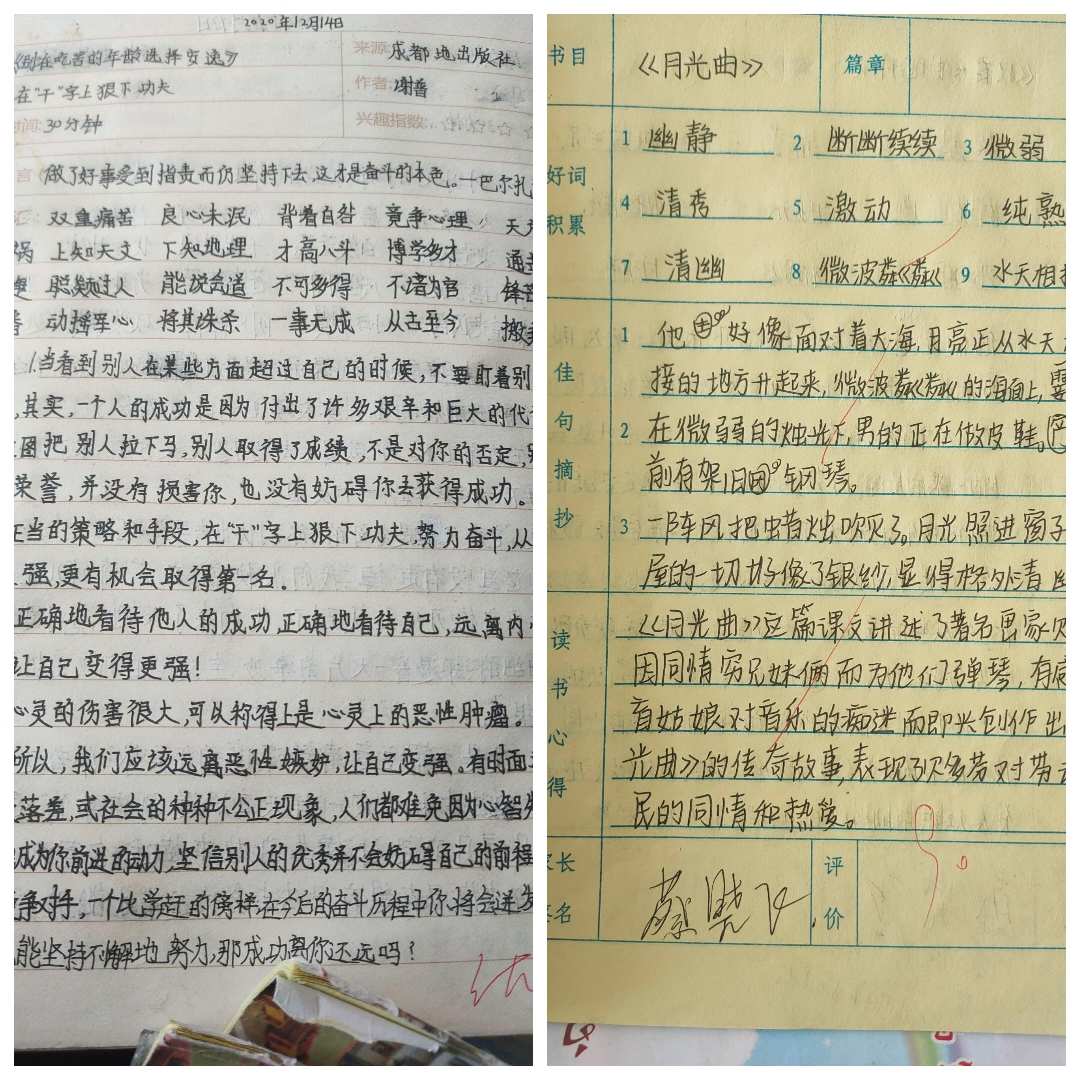 2020年12月14日
《别在吃苦的年龄选择安逸》
来源:成都地出版社
在"干"字上狠下功夫
作者:谢普
时间:30分钟
兴趣指数:
做了好事受到指责而仍坚持下去,这才是奋斗的本色。—巴尔扎
双重痛苦 良心未泯 背着自咎 竟争心理
祸 上知天文 下知地理 才高八斗 博学多才
聪颖过人 能说会道 不可多得 不啬为官 锋芒
动摇军心 将其诛杀 一事无成 从古至今 搬弄
1.当看到别人在某些方面超过自己的时候,不要盯着别
,其实,一个人的成功是因为付出了许多艰辛和巨大的代
图把别人拉下马,别人取得了成绩,不是对你的否定,
荣誉,并没有损害你,也没有妨碍你去获得成功。
正当的策略和手段,在"干"字上狠下功夫,努力奋斗,从
强,更有机会取得第一名.
正确地看待他人的成功,正确地看待自己,远离内
让自己变得更强!
心灵的伤害很大,可以称得上是心灵上的恶性肿瘤。
所以,我们应该远离恶性嫉妒,让自己变强。有时面
落差,或社会的种种不公正现象,人们都难免因为心智
成为你前进的动力,坚信别人的优秀并不会妨碍自己的前程
争对手,一个比学赶的榜样,在今后的奋斗历程中你将会迸发
能坚持不解地努力,那成功离你还远吗?
优
书目 《月光曲》 篇章
好词积累
1 幽静 2 断断续续 3 微弱
4 清秀 5 激动 6 纯熟
7 清幽 8 微波粼粼 9 水天相接
佳句摘抄
1 他好像面对着大海,月亮正从水天
接的地方升起来,微波粼粼的海面上,霎
2 在微弱的烛光下,男的正在做皮鞋。
前有架旧钢琴。
3 一阵风把蜡烛吹灭了。月光照进窗子
屋的一切好像了银纱,显得格外清幽
读书心得
《月光曲》这篇课文讲述了著名画家贝
因同情穷兄妹俩而为他们弹琴,有
盲姑娘对音乐的痴迷而即兴创作出
光曲》的传奇故事,表现了贝多芬对劳动
民的同情和热爱。
家长
签名
评
价